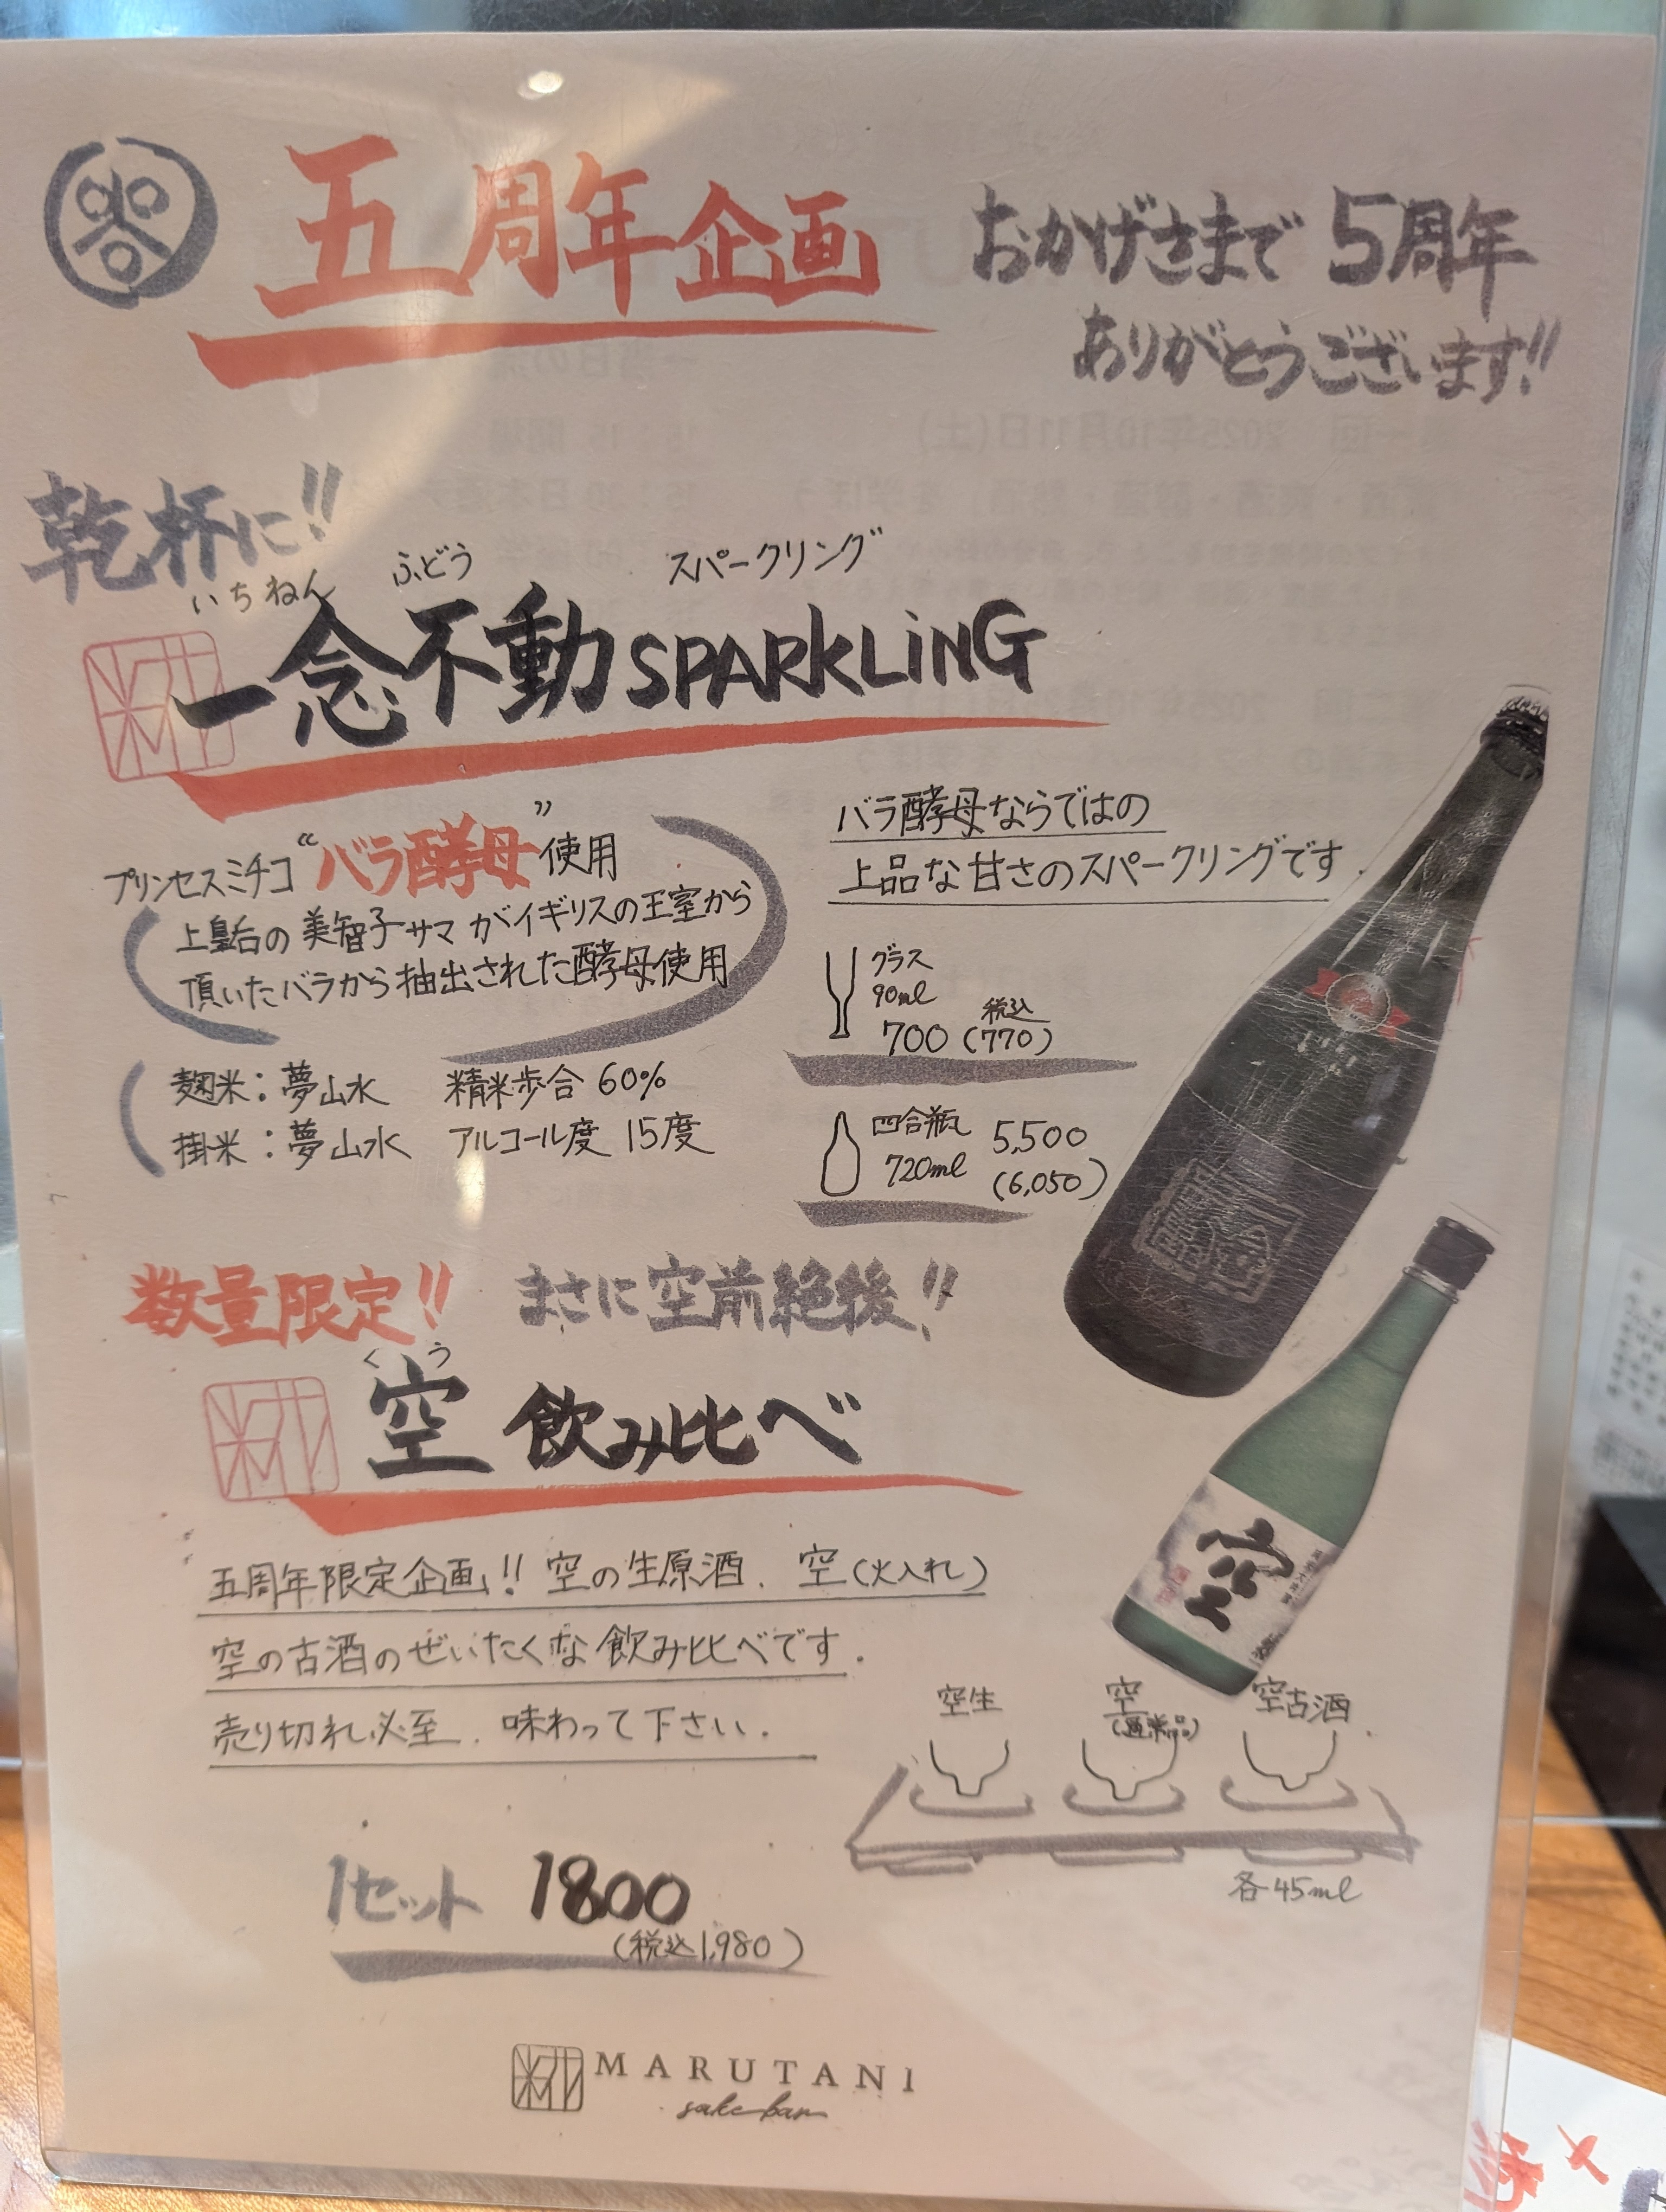 五周年企画
おかげさまで 5周年
ありがとうございます!!
乾杯に!!
いちねん ふどう スパークリング
一念不動 SPARKLING
プリンセスミチコ“バラ酵母”使用
上皇后の美智子サマがイギリスの王室から
頂いたバラから抽出された酵母使用
麹米：夢山水 精米歩合 60%
掛米：夢山水 アルコール度 15度
バラ酵母ならではの
上品な甘さのスパークリングです.
グラス
90ml
税込
700 (770)
四合瓶 5,500
720ml (6,050)
数量限定!! まさに空前絶後!!
くう
空 飲み比べ
五周年限定企画!! 空の生原酒、空(火入れ)
空の古酒のぜいたくな飲み比べです.
売り切れ必至、味わって下さい.
空
空生 空 空古酒
(通常品)
各45ml
1セット 1800
(税込1,980)
MARUTANI
sake bar
2025年10月11日(土)